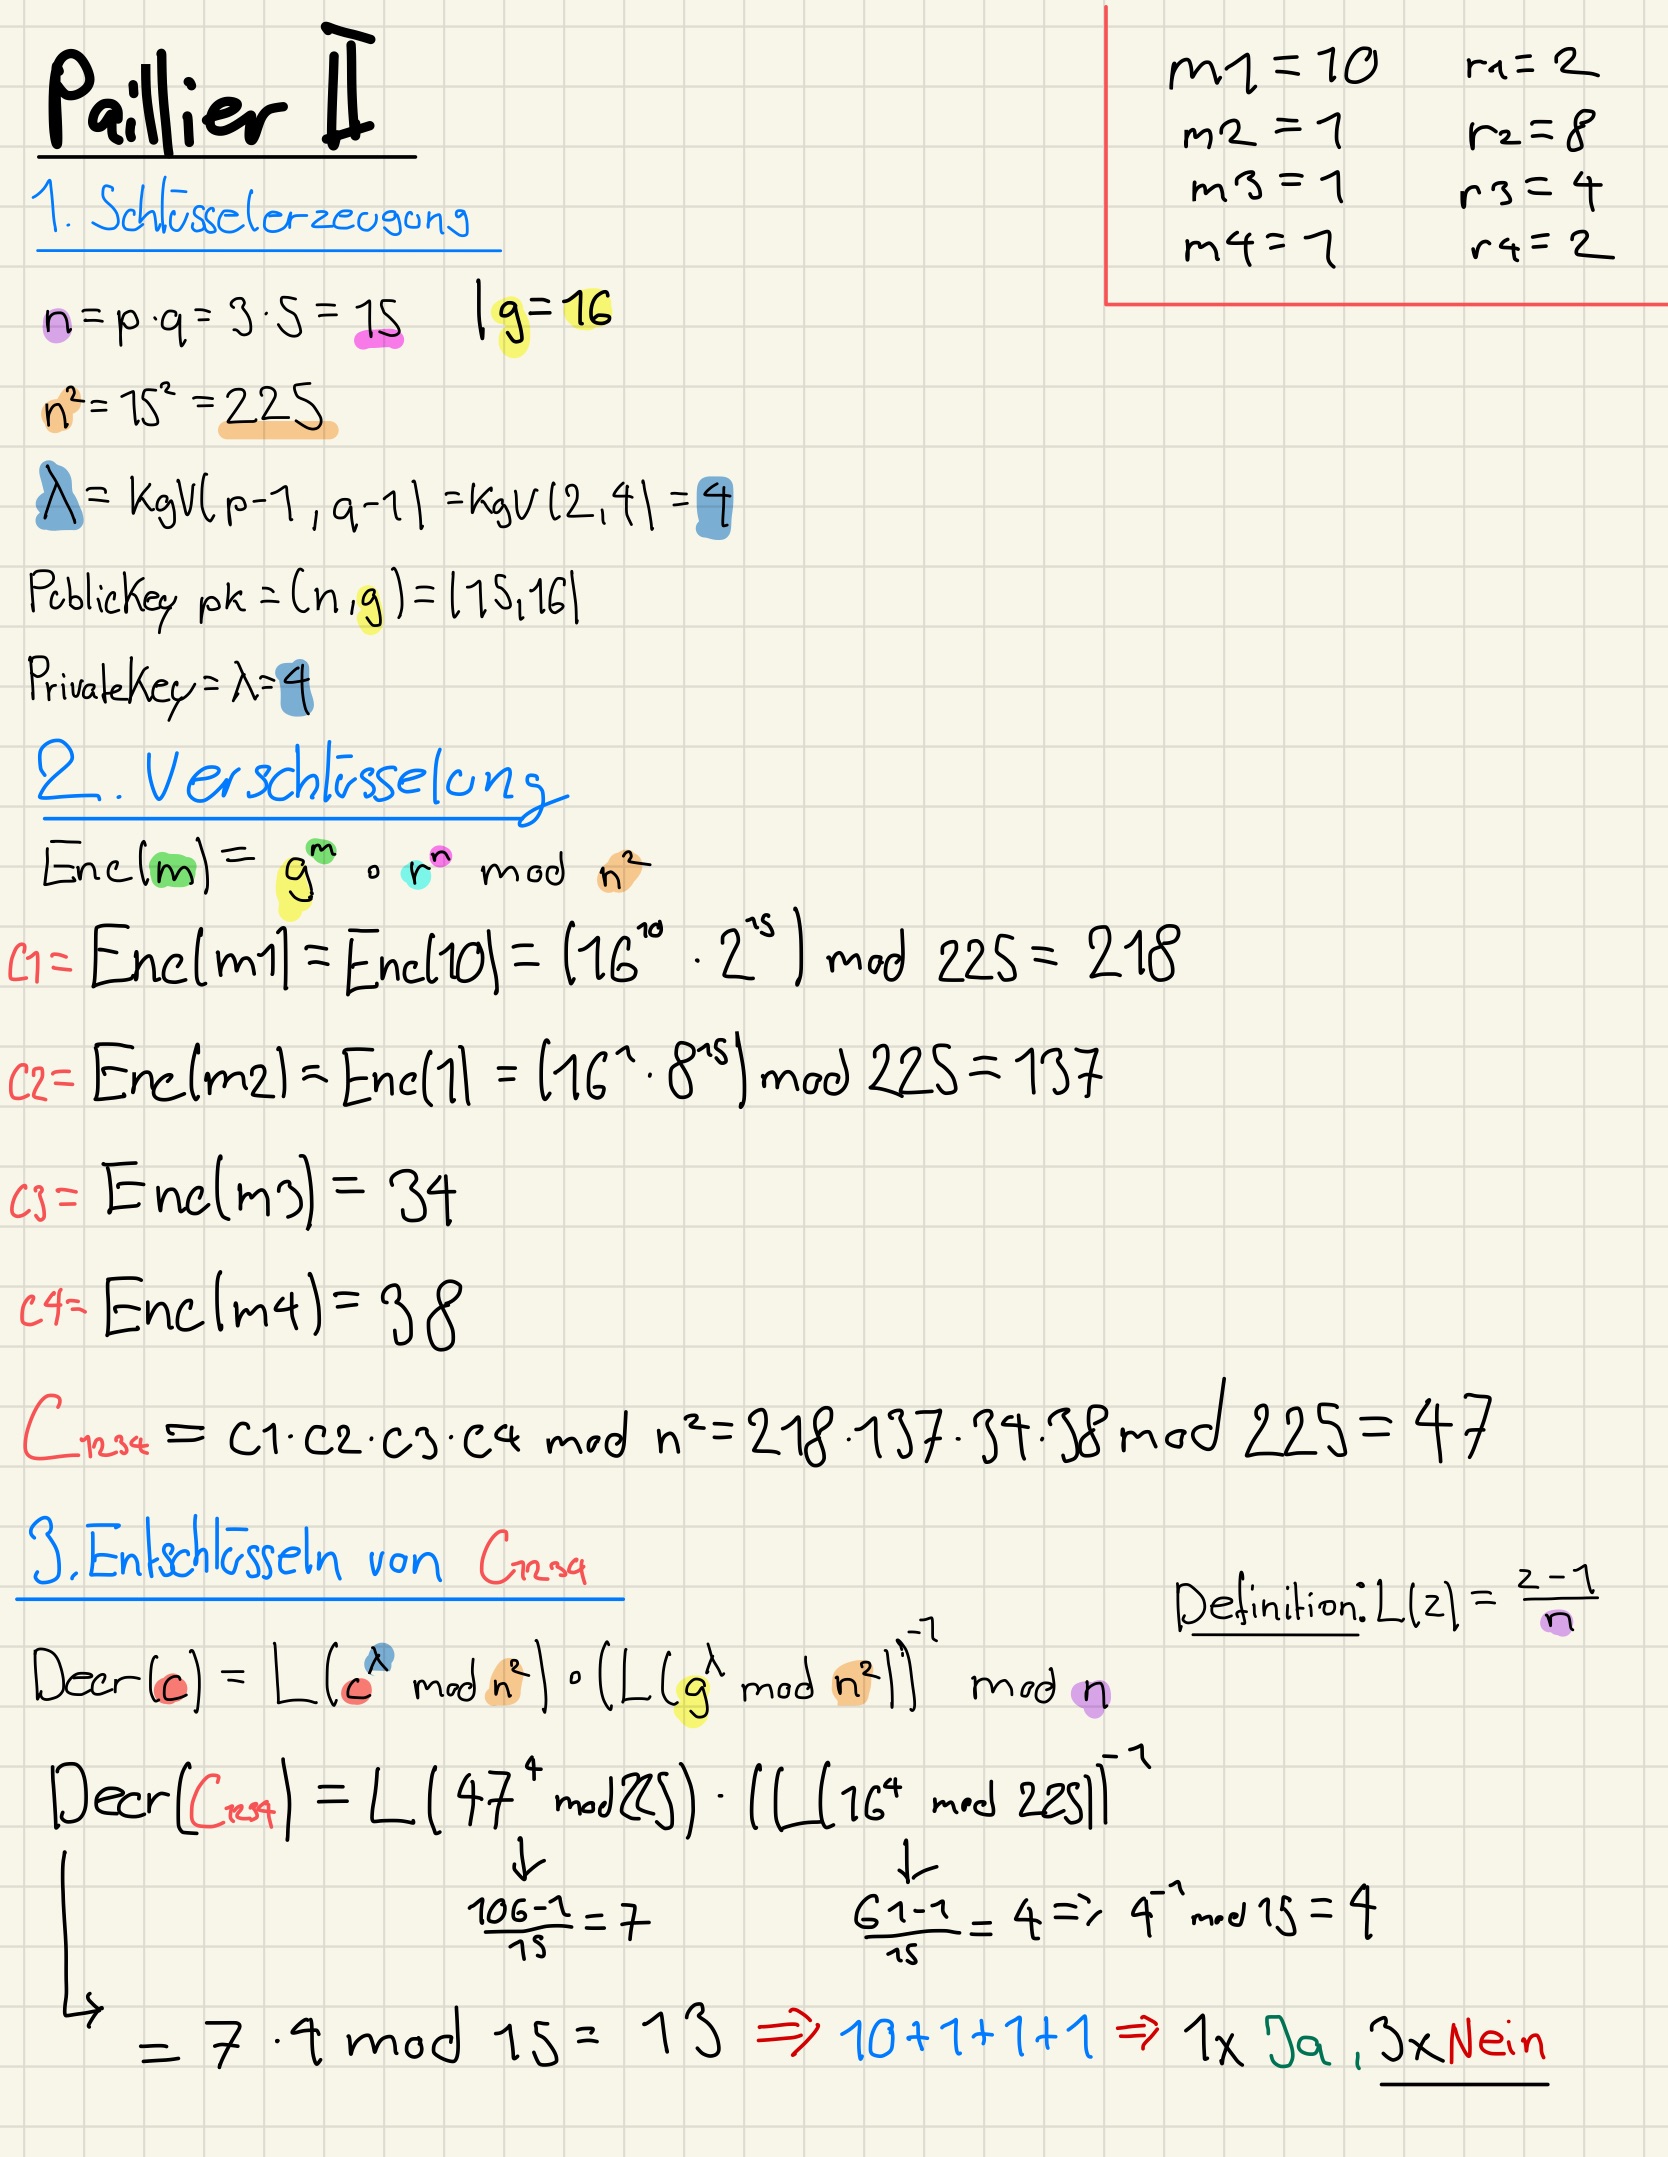 Paillier II
m1 = 10 r1 = 2
m2 = 1 r2 = 8
m3 = 1 r3 = 4
m4 = 1 r4 = 2
1. Schlüsselerzeugung
n = p·q = 3·5 = 15 | g = 16
n² = 15² = 225
λ = kgV(p-1, q-1) = kgV(2,4) = 4
PublicKey pk = (n,g) = (15,16)
PrivateKey = λ = 4
2. Verschlüsselung
Enc(m) = g^m ∘ r^n mod n²
c1 = Enc(m1) = Enc(10) = (16^10 · 2^15) mod 225 = 218
c2 = Enc(m2) = Enc(1) = (16^1 · 8^15) mod 225 = 137
c3 = Enc(m3) = 34
c4 = Enc(m4) = 38
C₁₂₃₄ = c1·c2·c3·c4 mod n² = 218·137·34·38 mod 225 = 47
3. Entschlüsseln von C₁₂₃₄
Definition: L(z) = (z-1)/n
Decr(c) = L(c^λ mod n²) ∘ (L(g^λ mod n²))⁻¹ mod n
Decr(C₁₂₃₄) = L(47⁴ mod 225) · (L(16⁴ mod 225))⁻¹
↓ ↓
(106-1)/15 = 7 (61-1)/15 = 4 => 4⁻¹ mod 15 = 4
= 7·4 mod 15 = 13 ⇒ 10+1+1+1 ⇒ 1x Ja, 3x Nein